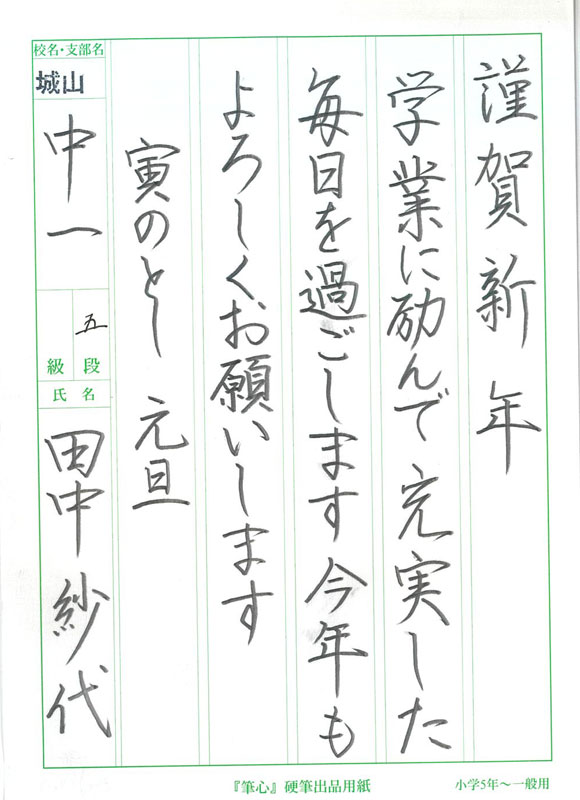 謹賀新年
学業に励んで充実した
毎日を過ごします今年も
よろしくお願いします
寅のとし 元旦
校名・支部名
城山
中一
五
級 段
氏 名
田中紗代
『筆心』硬筆出品用紙
小学5年～一般用